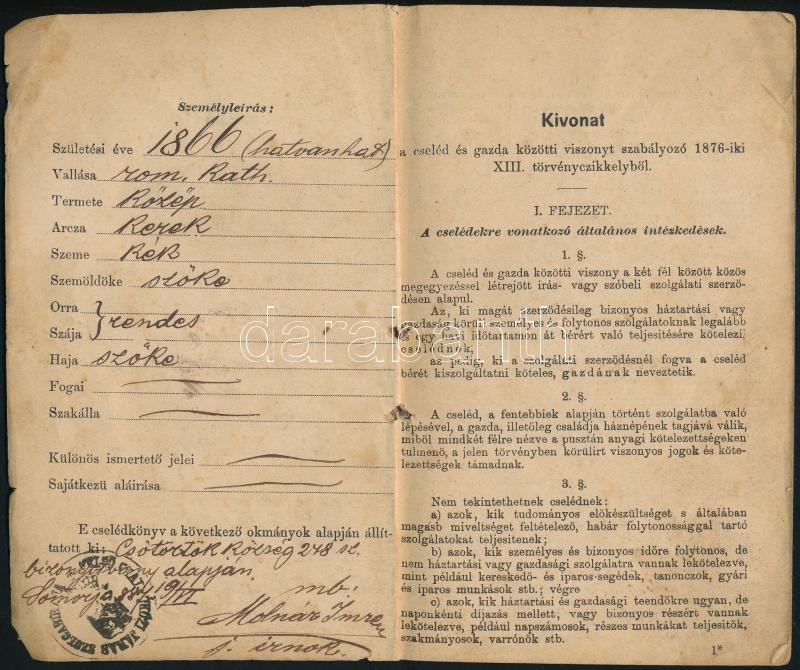 Személyleírás:
Születési éve 1866 (hatvanhat)
Vallása rom. kath.
Termete Közép
Arcza Kerek
Szeme Kék
Szemöldöke szőke
Orra
rendes
Szája
Haja szőke
Fogai
Szakálla
Különös ismertető jelei
Sajátkezű aláirása
E cselédkönyv a következő okmányok alapján állít-
tatott ki: Csötörtök község 248 sz.
bizonyítvány alapján
Somorja 19/VI
Molnár Imre
j. irnok.
Kivonat
a cseléd és gazda közötti viszonyt szabályozó 1876-iki
XIII. törvényczikkelyből.
I. FEJEZET.
A cselédekre vonatkozó általános intézkedések.
1. §.
A cseléd és gazda közötti viszony a két fél között közös
megegyezéssel létrejött irás- vagy szóbeli szolgálati szerző-
désen alapul.
Az, ki magát szerződésileg bizonyos háztartási vagy
gazdaság körüli személyes és folytonos szolgálatoknak legalább
is egy havi időtartamon át bérért való teljesitésére kötelezi,
cselédnek,
az pedig, ki a szolgálati szerződésnél fogva a cseléd
bérét kiszolgáltatni köteles, gazdának neveztetik.
2. §.
A cseléd, a fentebbiek alapján történt szolgálatba való
lépésével, a gazda, illetőleg családja háznépének tagjává válik,
miből mindkét félre nézve a pusztán anyagi kötelezettségeken
tulmenő, a jelen törvényben körülirt viszonyos jogok és köte-
lezettségek támadnak.
3. §.
Nem tekintethetnek cselédnek:
a) azok, kik tudományos előkészültséget s általában
magasb miveltséget feltételező, habár folytonossággal tartó
szolgálatokat teljesitenek;
b) azok, kik személyes és bizonyos időre folytonos, de
nem háztartási vagy gazdasági szolgálatra vannak lekötelezve,
mint például kereskedő- és iparos-segédek, tanonczok, gyári
és iparos munkások stb.; végre
c) azok, kik háztartási és gazdasági teendőkre ugyan, de
naponkénti dijazás mellett, vagy bizonyos részért vannak
lekötelezve, például napszámosok, részes munkákat teljesitők,
szakmányosok, varrónők stb.
1*